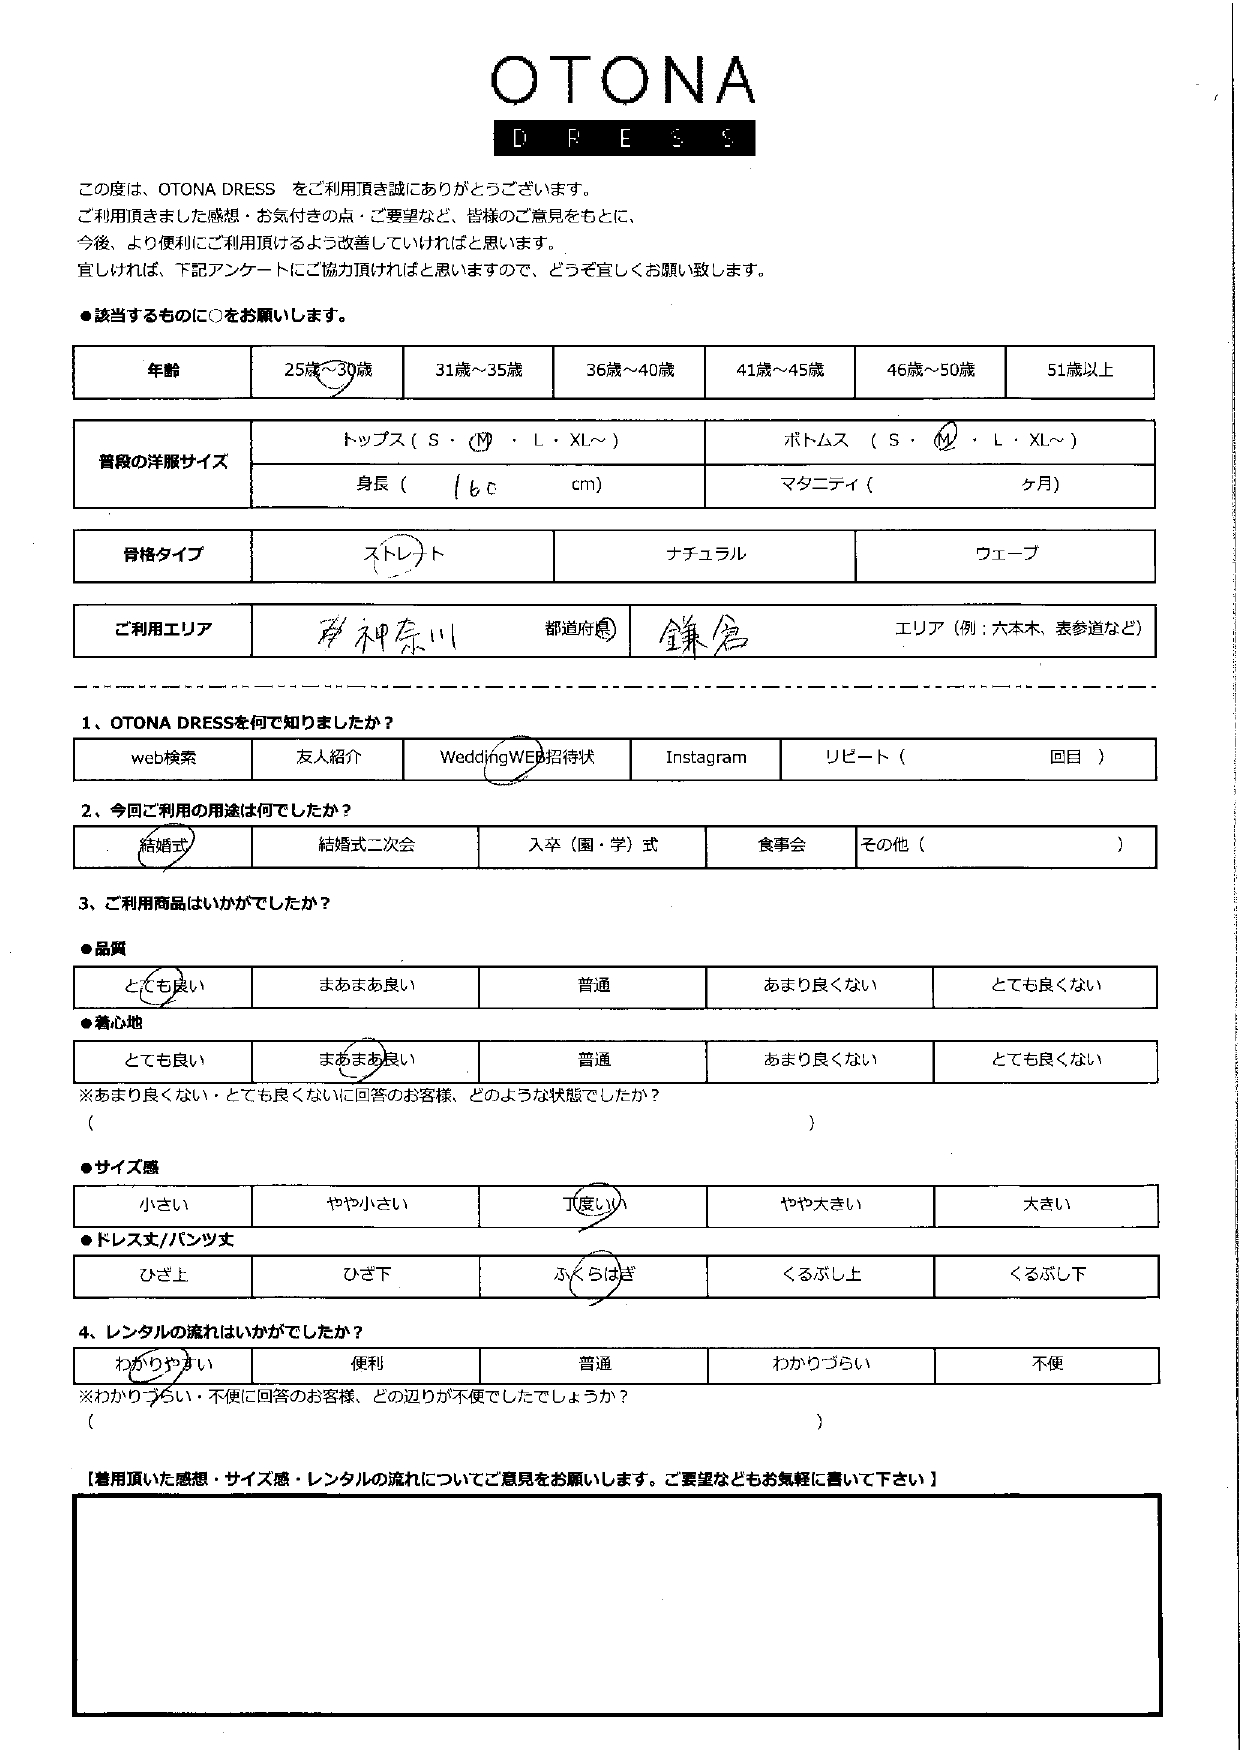 OTONA
DRESS
この度は、OTONA DRESS　をご利用頂き誠にありがとうございます。
ご利用頂きました感想・お気付きの点・ご要望など、皆様のご意見をもとに、
今後、より便利にご利用頂けるよう改善していければと思います。
宜しければ、下記アンケートにご協力頂ければと思いますので、どうぞ宜しくお願い致します。
●該当するものに○をお願いします。
年齢 25歳～30歳 31歳～35歳 36歳～40歳 41歳～45歳 46歳～50歳 51歳以上
普段の洋服サイズ トップス ( S ・ M ・ L ・ XL～ ) ボトムス ( S ・ M ・ L ・ XL～ )
身長 ( 160 cm) マタニティ ( ヶ月)
骨格タイプ ストレート ナチュラル ウェーブ
ご利用エリア 神奈川 都道府県 鎌倉 エリア（例；六本木、表参道など）
1、OTONA DRESSを何で知りましたか？
web検索 友人紹介 WeddingWEB招待状 Instagram リピート（ 回目 ）
2、今回ご利用の用途は何でしたか？
結婚式 結婚式二次会 入卒（園・学）式 食事会 その他（ ）
3、ご利用商品はいかがでしたか？
●品質
とても良い まあまあ良い 普通 あまり良くない とても良くない
●着心地
とても良い まあまあ良い 普通 あまり良くない とても良くない
※あまり良くない・とても良くないに回答のお客様、どのような状態でしたか？
（ ）
●サイズ感
小さい やや小さい 丁度いい やや大きい 大きい
●ドレス丈/パンツ丈
ひざ上 ひざ下 ふくらはぎ くるぶし上 くるぶし下
4、レンタルの流れはいかがでしたか？
わかりやすい 便利 普通 わかりづらい 不便
※わかりづらい・不便に回答のお客様、どの辺りが不便でしたでしょうか？
（ ）
【着用頂いた感想・サイズ感・レンタルの流れについてご意見をお願いします。ご要望などもお気軽に書いて下さい 】